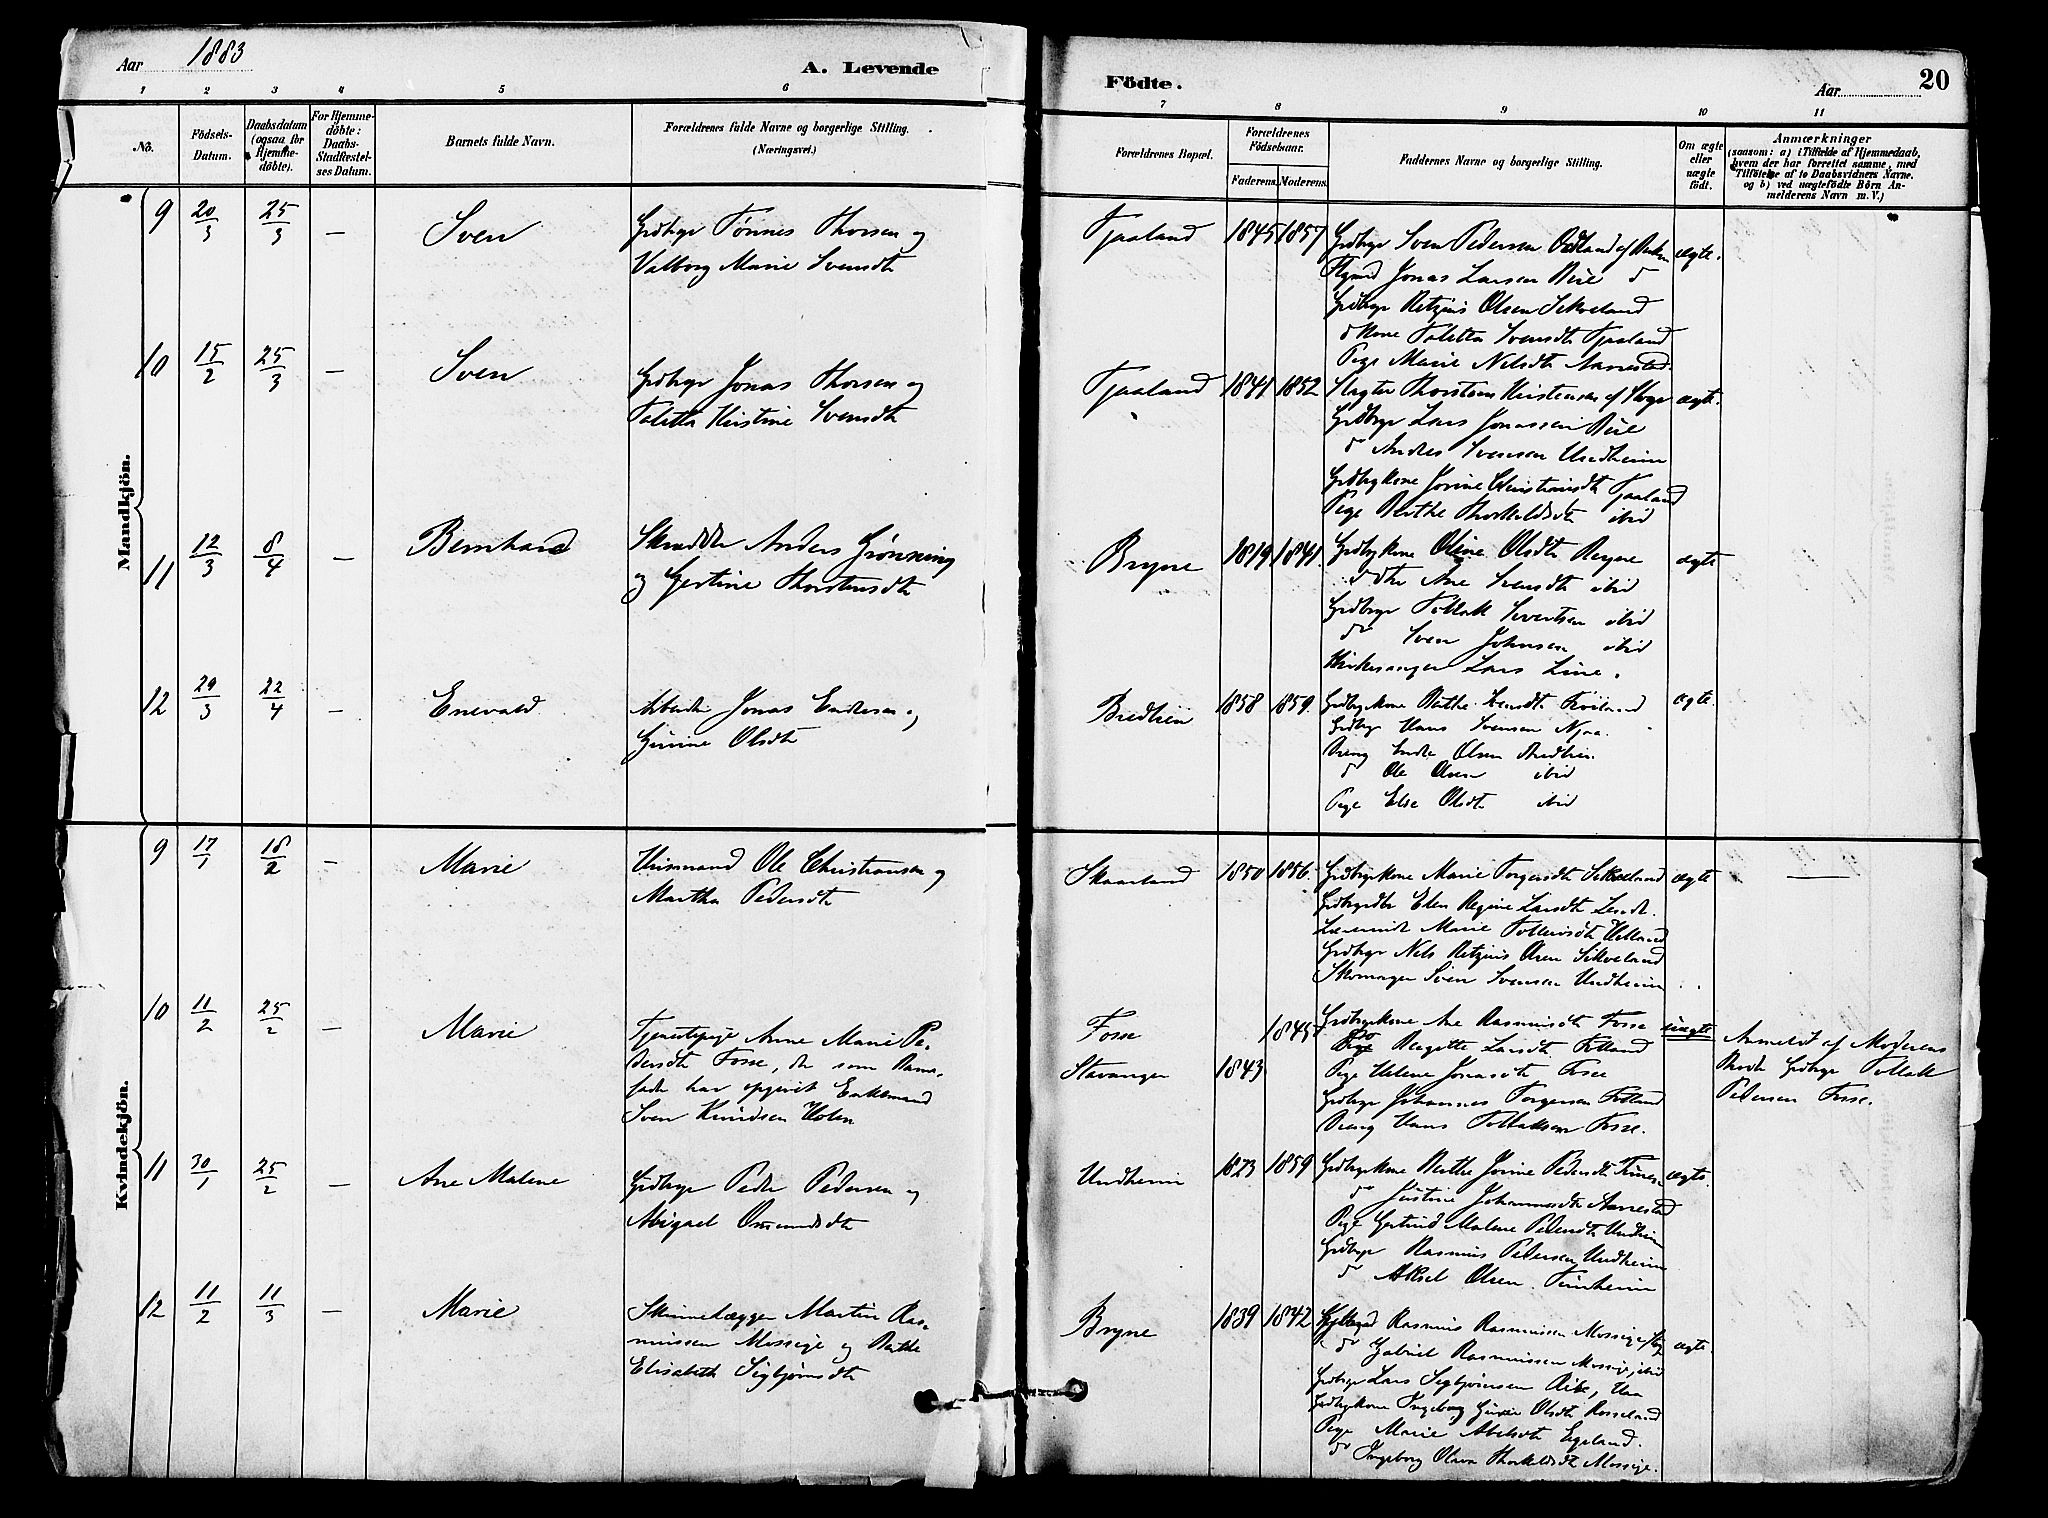 Aar 1883
A. Levende
Födte.
Aar
20
1 2 3 4 5 6 7 8 9 10 11
No.
Födsels-Datum.
Daabsdatum (ogsaa for Hjemme-döbte).
For Hjemme-döbte: Daabs-Stadfæstel-ses Datum.
Barnets fulde Navn.
Forældrenes fulde Navne og borgerlige Stilling. (Næringsvei.)
Forældrenes Bopæl.
Forældrenes Födselsaar.
Faderens. Moderens.
Faddernes Navne og borgerlige Stilling.
Om ægte eller uægte födt.
Anmærkninger
(saasom: a) i Tilfælde af Hjemmedaab,
hvem der har forrettet samme, med
Tilföielse af to Daabsvidners Navne.
og b) ved uægtefödte Börn An-
melderens Navn m. V.)
Mandkjön.
9 20/3 25/3 — Sven
Grdbgr Tønnes Thorsen og
Valborg Marie Svensdt
Tjaaland 1845 1857
Grdbgr Sven Pedersen Odland af
Jonas Larsen Riie
Grdbgr Retzius Olsen Sikveland
Kone Toletta Svensdt Tjaaland
Pige Marie Nilsdt Aarrestad
ægte.
10 15/2 25/3 — Sven
Grdbgr Jonas Thorsen og
Toletta Kirstine Svensdt
Tjaaland 1841 1852
Slagter Thorsteen Kirstensen af
Grdbgr Lars Jonassen Riie
do Andres Svensen Undheim
Grdbrkone Jorine Christiansdt Tjaaland
Pige Berthe Thorkildsdt ibid
ægte.
11 12/3 8/4 — Bernhard
Skrædder Anders Grønning
og Gertine Thorstensdt
Bryne 1819 1841.
Grdbrkone Oline Olsdt Bryne
do Ane Svensdt ibid
Grdbgr Tollak Sivertsen ibid
do Sven Johnsen ibid
Kirkesanger Lars Line.
ægte
12 29/3 22/4 — Enevald
Arbeider Jonas Endresen og
Gurine Olsdt
Bredlien 1858 1859.
Grdbrkone Berthe Svensdt Frøiland
Grdbgr Hans Svensen Njaa.
Dreng Endre Olsen Bredlien.
do Ole Olsen ibid
Pige Else Olsdt ibid
ægte.
Kvindekjön.
9 17/1 18/2 — Marie
Huusmand Ole Christiansen og
Martha Pedersdt
Skaarland 1850 1856.
Grdbrkone Marie Torgersdt Sikveland
Elen Regine Larsdt
Marie Tollevsdt Helland
Grdbgr Nils Retzius Olsen Sikveland
Skomager Sven Svensen Undheim
ægte —
10 11/2 25/2 — Marie
Tjenestepige Anne Marie Pe-
dersdt Fosse, der som Barne-
fader har opgivet Enkemand
Sven Knudsen Holen
Fosse 1845
Stavanger 1843
Grdbrkone Ane Rasmusdt Fosse
do Bergitte Larsdt Fotland
Pige Helene Jonasdt Fosse
Grdbgr Johannes Torgersen Fotland
Dreng Hans Tollaksen Fosse.
uægte
Anmeldt af Moderens
Broder Grdbgr Tollak
Pedersen Fosse.
11 30/1 25/2 — Ane Malene
Grdbgr Peder Pedersen og
Abigael Osmundsdt
Undheim 1823 1859
Grdbrkone Berthe Jorine Pedersdt
do Justine Johannesdt Aarrestad
Pige Gertrud Malene Pedersdt Undheim
Grdbgr Rasmus Pedersen Undheim
do Aksel Olsen Tunheim
ægte.
12 11/2 11/3 — Marie
Skinnelægger Martin Ras-
mussen Mossige og Berthe
Elisabeth Sigbjørnsdt
Bryne 1839 1842
Rasmus Rasmussen Mossige
do Gabriel Rasmussen Mossige, ibid
Grdbgr Lars Sigbjørnsen
Grdbrkone Ingeborg Gurie Olsdt Rosseland
Pige Marie Abelsdt Egeland.
do Ingeborg Olava Thorkildsdt Mossige.
ægte.